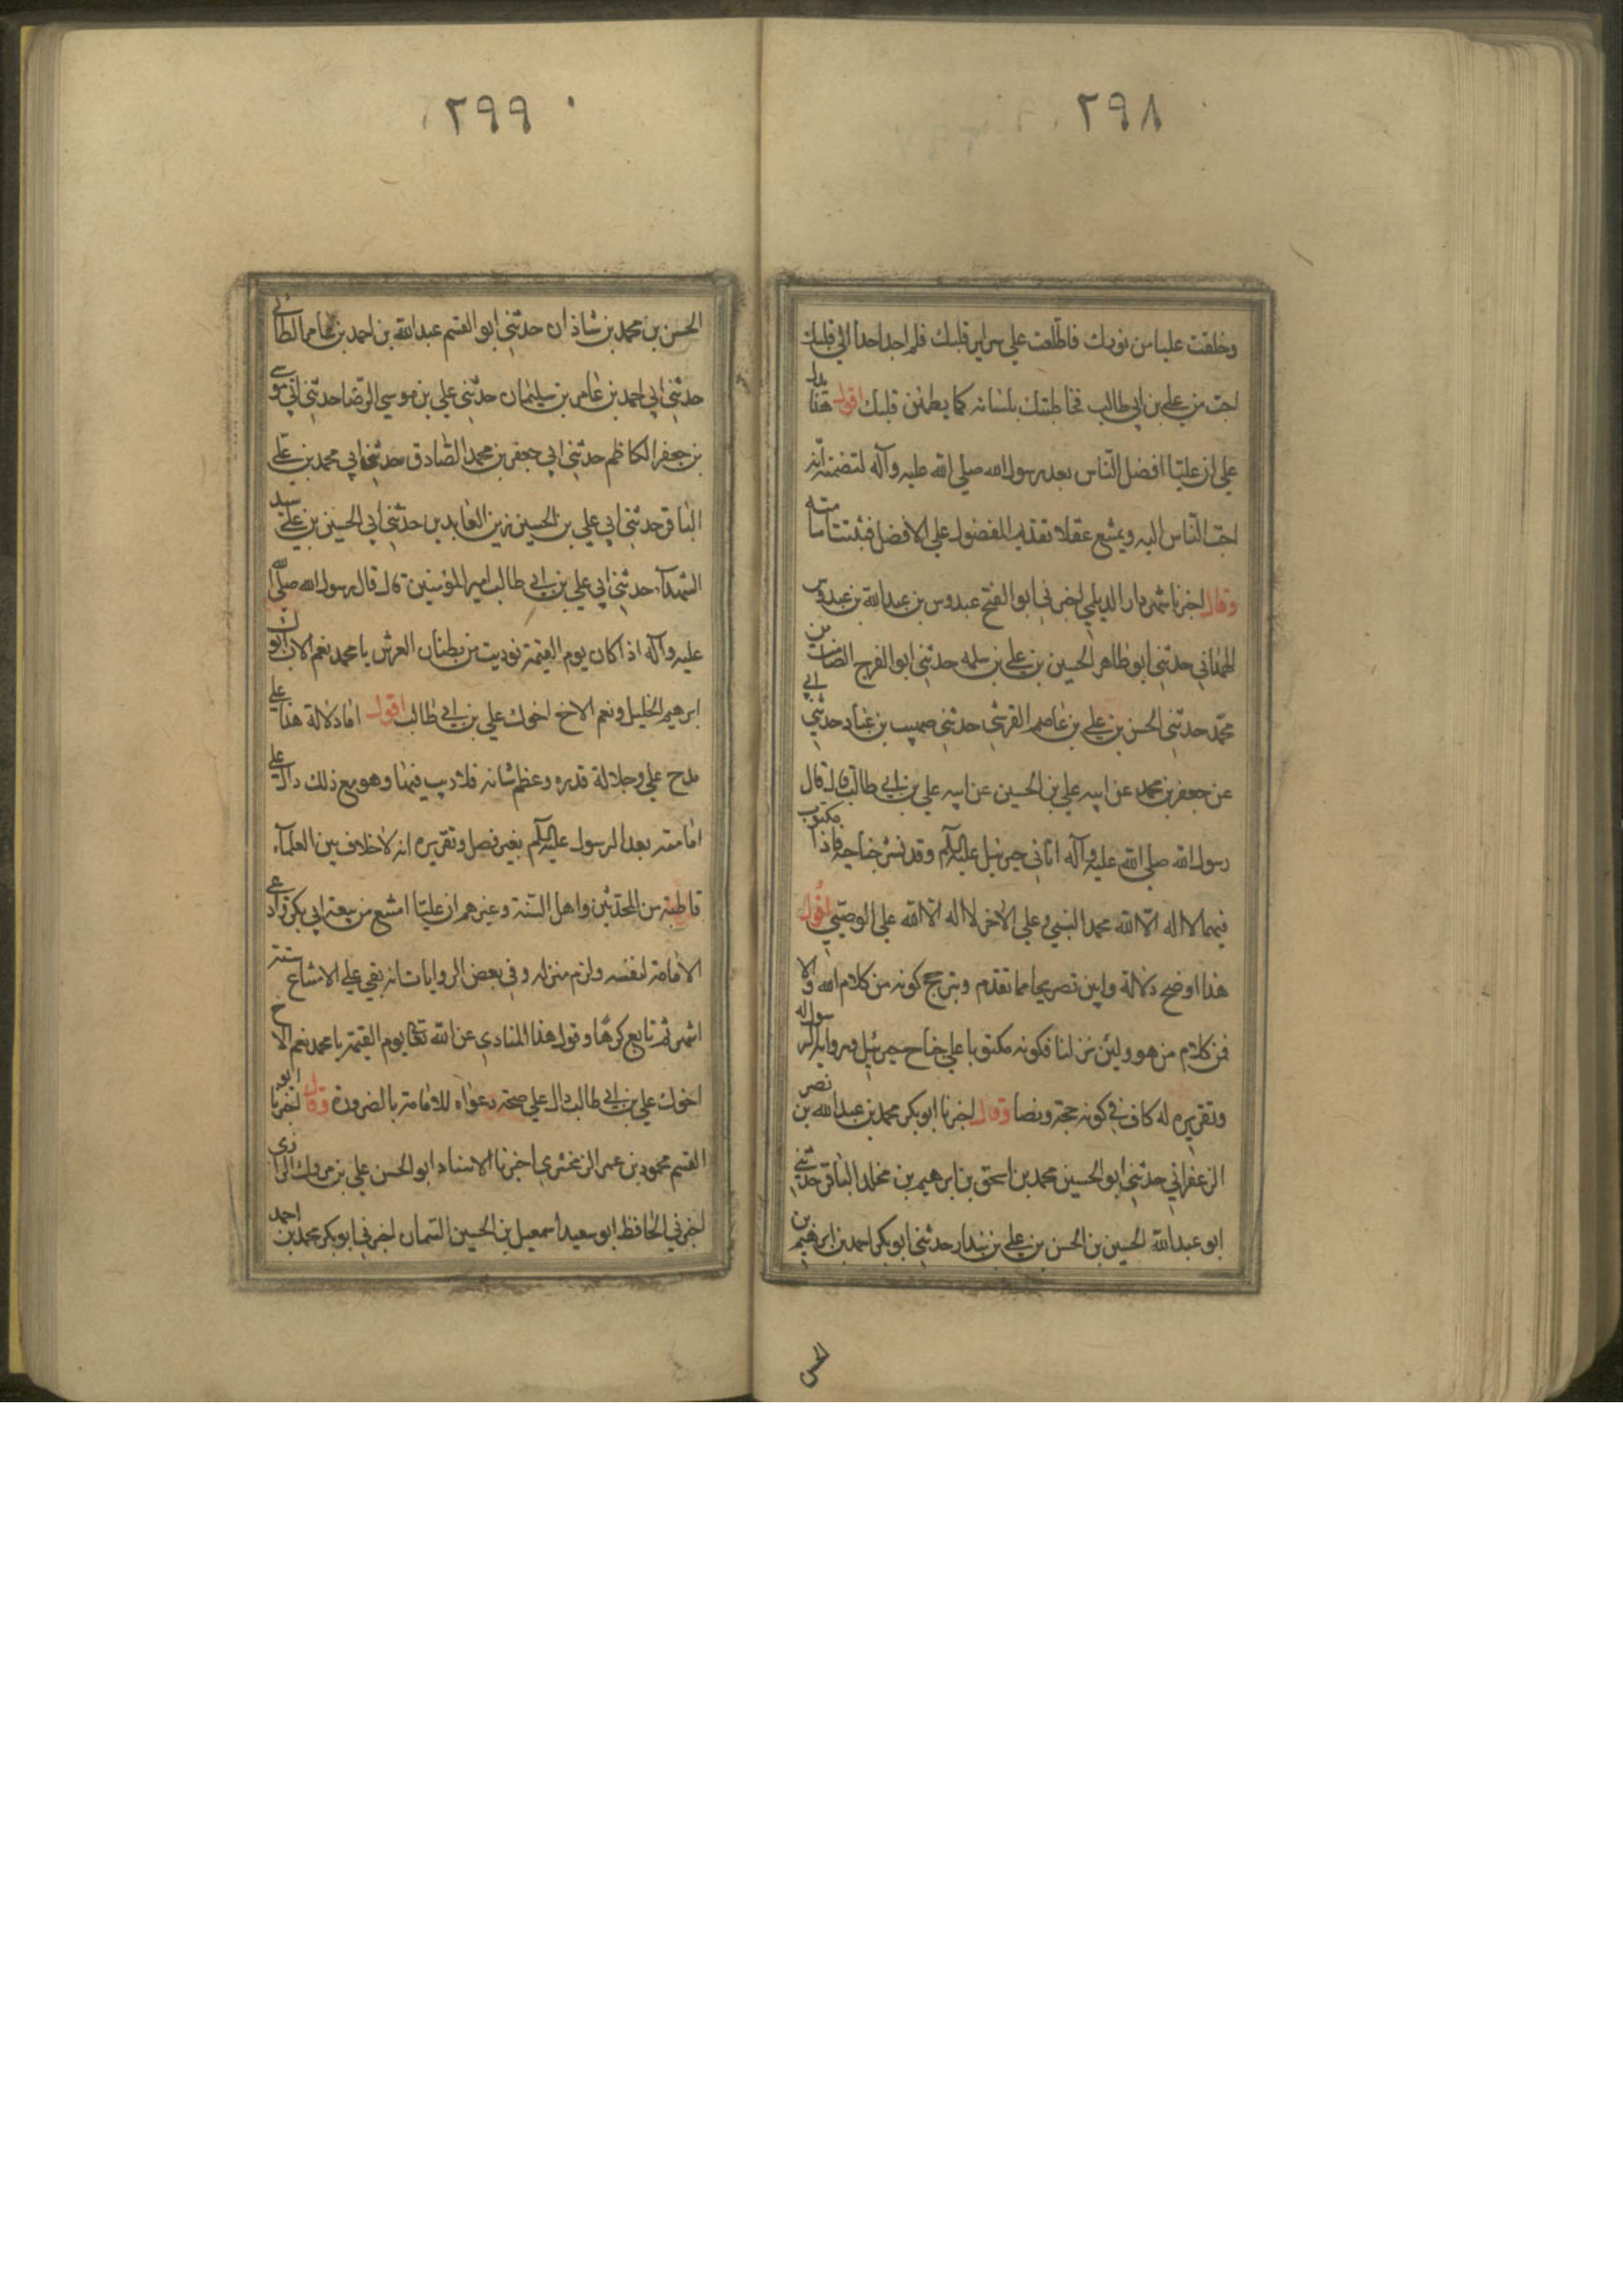 ٢٩٨
وخلقت عليا من نورك فاطلعت علي سراير قلبك فلم اجد احدا الي قلبك
احب من علي بن ابي طالب فخاطبتك بلسانه كما يطمئن قلبك اقول هذا يدل
علي ان عليّا افضل الناس بعد رسول الله صلي الله عليه وآله لتضمنه انه
احب الناس اليه ويمتنع عقلا تقديم المفضول علي الافضل فثبتت امامته
وقال اخبرنا شهردار الديلمي اخبرني ابو الفتح عبدوس بن عبدالله بن عبدوس
الهمداني حدثني ابو طاهر الحسين بن علي بن سلمه حدثني ابو الفرج الصامت بن
محمد حدثني الحسن بن علي بن عاصم القرشي حدثني صهيب بن عباد حدثني ابي
عن جعفر بن محمد عن ابيه علي بن الحسين عن ابيه علي بن ابي طالب قال قال
رسول الله صلي الله عليه وآله اتاني جبرئيل عليه السلم وقد نشر جناحيه فاذا مكتوب
فيهما لا اله الا الله محمد النبي وعلي الاخر لا اله الا الله علي الوصي اقول
هذا اوضح دلالة وابين تصريحا مما تقدم ويترجح كونه من كلام الله والا
فمن كلام من هو ولئن نزلنا فكونه مكتوبا علي جناح جبرئيل ورواية الرسول له
وتقريره له كاف في كونه حجة ونصا وقال اخبرنا ابو بكر محمد بن عبدالله بن نصر
الزعفراني حدثني ابو الحسين محمد بن اسحق بن ابرهيم بن مخلد الباقر حدثني
ابو عبدالله الحسين بن الحسن بن علي بن بندار حدثني ابو بكر احمد بن ابرهيم بن
الحسن
٢٩٩
الحسن بن محمد بن شاذان حدثني ابو القسم عبدالله بن احمد بن عامر الطائي
حدثني ابي احمد بن عامر بن سليمان حدثني علي بن موسي الرضا حدثني ابي موسي
بن جعفر الكاظم حدثني ابي جعفر بن محمد الصادق حدثني ابي محمد بن علي
الباقر حدثني ابي علي بن الحسين زين العابدين حدثني ابي الحسين بن علي سيد
الشهدآء حدثني ابي علي بن ابي طالب امير المؤمنين قال قال رسول الله صلي الله
عليه وآله اذا كان يوم القيمة نوديت من بطنان العرش يا محمد نعم الاب ابوك
ابرهيم الخليل ونعم الاخ اخوك علي بن ابي طالب اقول اما دلالة هذا علي
مدح علي وجلالة قدره وعظم شانه فلا ريب فيها وهو مع ذلك دال علي
امامته بعد الرسول عليه السلم بغير فصل وتقريره انه لا خلاف بين العلمآء
قاطبة من المحدثين واهل السنة وغيرهم ان عليّا امتنع من بيعة ابي بكر وادعي
الامامة لنفسه ولزم منزله وفي بعض الروايات انه بقي علي الامتناع ستة
اشهر ثم تابع كرها وقول هذا المنادي عن الله تعالي يوم القيمة يا محمد نعم الاخ
اخوك علي بن ابي طالب دال علي صحة دعواه للامامة بالضرورة وقال اخبرنا ابو
القسم محمود بن عمر الزمخشري اخبرنا الاستاد ابو الحسن علي بن مردك الرازي
اخبرني الحافظ ابو سعيد اسمعيل بن الحسين السمان اخبرني ابو بكر محمد بن احمد